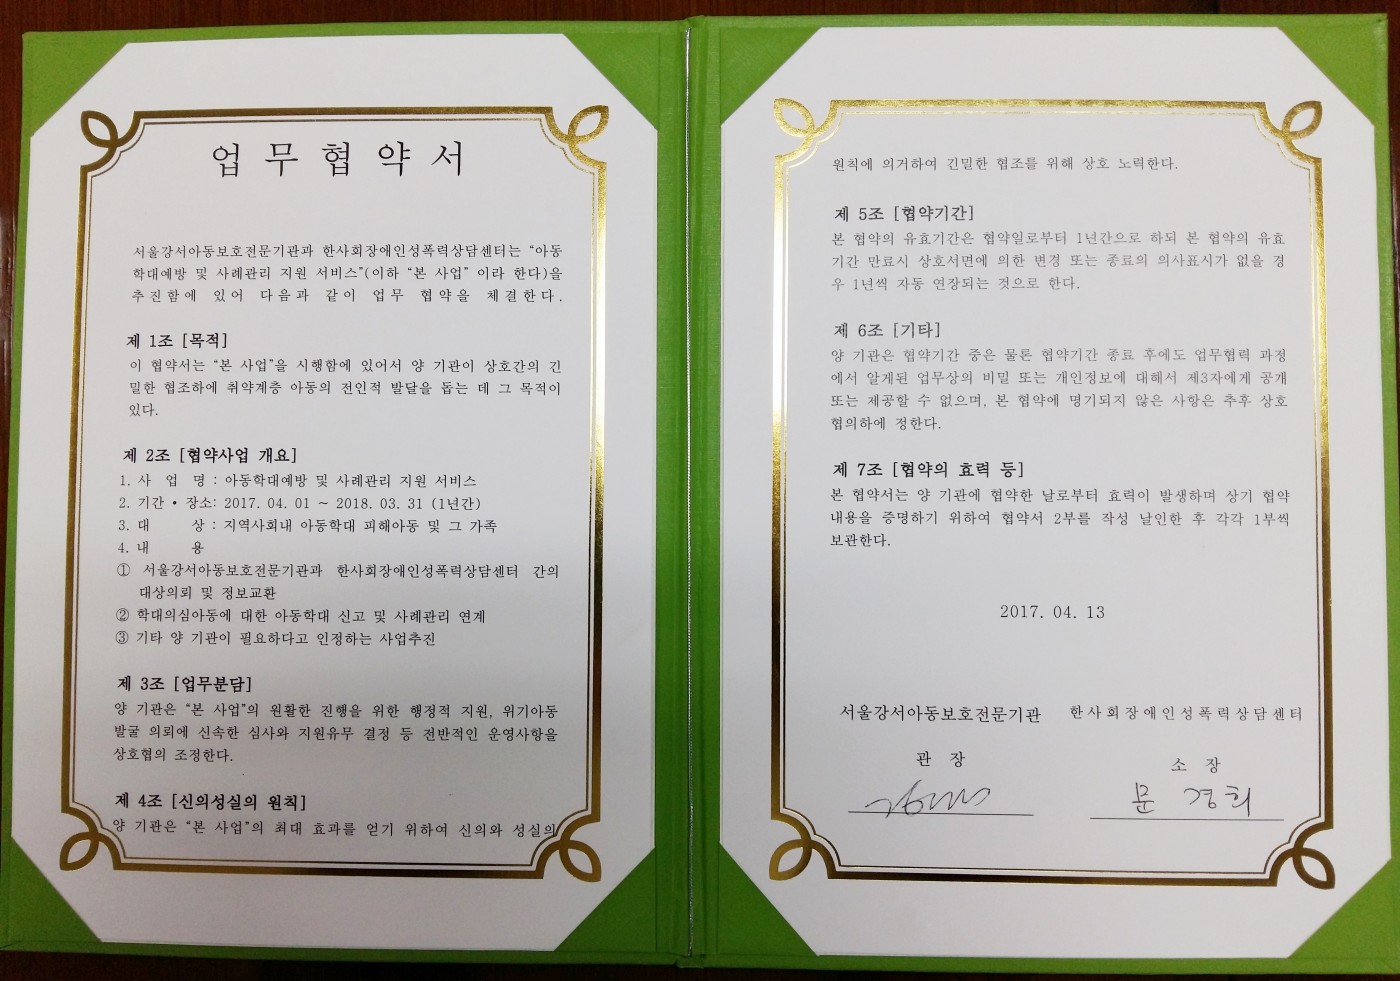 업무협약서
서울강서아동보호전문기관과 한사회장애인성폭력상담센터는 “아동
학대예방 및 사례관리 지원 서비스”(이하 “본 사업” 이라 한다)을
추진함에 있어 다음과 같이 업무 협약을 체결한다.
제 1조 [목적]
이 협약서는 “본 사업”을 시행함에 있어서 양 기관이 상호간의 긴
밀한 협조하에 취약계층 아동의 전인적 발달을 돕는 데 그 목적이
있다.
제 2조 [협약사업 개요]
1. 사 업 명 : 아동학대예방 및 사례관리 지원 서비스
2. 기간 • 장소: 2017. 04. 01 ~ 2018. 03. 31 (1년간)
3. 대 상 : 지역사회내 아동학대 피해아동 및 그 가족
4. 내 용
① 서울강서아동보호전문기관과 한사회장애인성폭력상담센터 간의
대상의뢰 및 정보교환
② 학대의심아동에 대한 아동학대 신고 및 사례관리 연계
③ 기타 양 기관이 필요하다고 인정하는 사업추진
제 3조 [업무분담]
양 기관은 “본 사업”의 원활한 진행을 위한 행정적 지원, 위기아동
발굴 의뢰에 신속한 심사와 지원유무 결정 등 전반적인 운영사항을
상호협의 조정한다.
제 4조 [신의성실의 원칙]
양 기관은 “본 사업”의 최대 효과를 얻기 위하여 신의와 성실의
원칙에 의거하여 긴밀한 협조를 위해 상호 노력한다.
제 5조 [협약기간]
본 협약의 유효기간은 협약일로부터 1년간으로 하되 본 협약의 유효
기간 만료시 상호서면에 의한 변경 또는 종료의 의사표시가 없을 경
우 1년씩 자동 연장되는 것으로 한다.
제 6조 [기타]
양 기관은 협약기간 중은 물론 협약기간 종료 후에도 업무협력 과정
에서 알게된 업무상의 비밀 또는 개인정보에 대해서 제3자에게 공개
또는 제공할 수 없으며, 본 협약에 명기되지 않은 사항은 추후 상호
협의하에 정한다.
제 7조 [협약의 효력 등]
본 협약서는 양 기관에 협약한 날로부터 효력이 발생하며 상기 협약
내용을 증명하기 위하여 협약서 2부를 작성 날인한 후 각각 1부씩
보관한다.
2017. 04. 13
서울강서아동보호전문기관 한사회장애인성폭력상담센터
관 장 소 장
문 경희